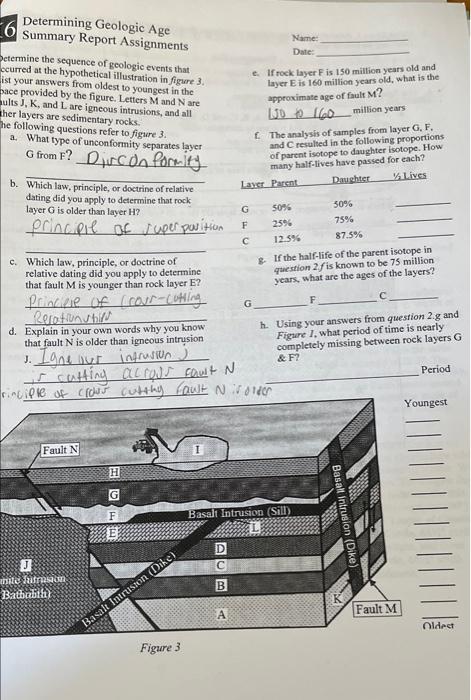 6 Determining Geologic Age
Summary Report Assignments
Name:
Date:
Determine the sequence of geologic events that
occurred at the hypothetical illustration in figure 3.
List your answers from oldest to youngest in the
space provided by the figure. Letters M and N are
faults J, K, and L are igneous intrusions, and all
ther layers are sedimentary rocks.
The following questions refer to figure 3.
a. What type of unconformity separates layer
G from F? Disconformity
b. Which law, principle, or doctrine of relative
dating did you apply to determine that rock
layer G is older than layer H?
principle of superposition
c. Which law, principle, or doctrine of
relative dating did you apply to determine
that fault M is younger than rock layer E?
Principle of Cross-cutting
Relationship
d. Explain in your own words why you know
that fault N is older than igneous intrusion
J. Igneous intrusion J
is cutting across fault N
rinciple of cross cutting fault N is older
e. If rock layer F is 150 million years old and
layer E is 160 million years old, what is the
approximate age of fault M?
150 to 160 million years
f. The analysis of samples from layer G, F,
and C resulted in the following proportions
of parent isotope to daughter isotope. How
many half-lives have passed for each?
Layer Parent Daughter ½ Lives
G 50% 50%
F 25% 75%
C 12.5% 87.5%
g. If the half-life of the parent isotope in
question 2.f is known to be 75 million
years, what are the ages of the layers?
G F C
h. Using your answers from question 2.g and
Figure 1, what period of time is nearly
completely missing between rock layers G
& F?
Period
Youngest
Fault N
I
H
G
F
Basalt Intrusion (Sill)
E
L
D
J
C
nite Intrusion
Batholith)
B
Basalt Intrusion (Dike)
Basalt Intrusion (Dike)
A
K
Fault M
Oldest
Figure 3